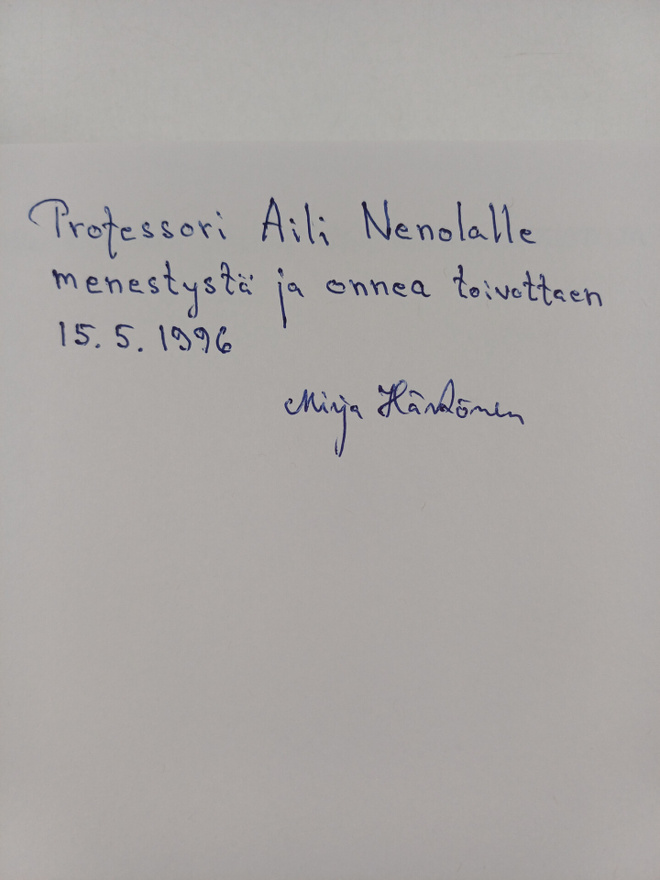 Professori Aili Nenolalle
menestystä ja onnea toivottaen
15.5.1996
Mirja Härkönen